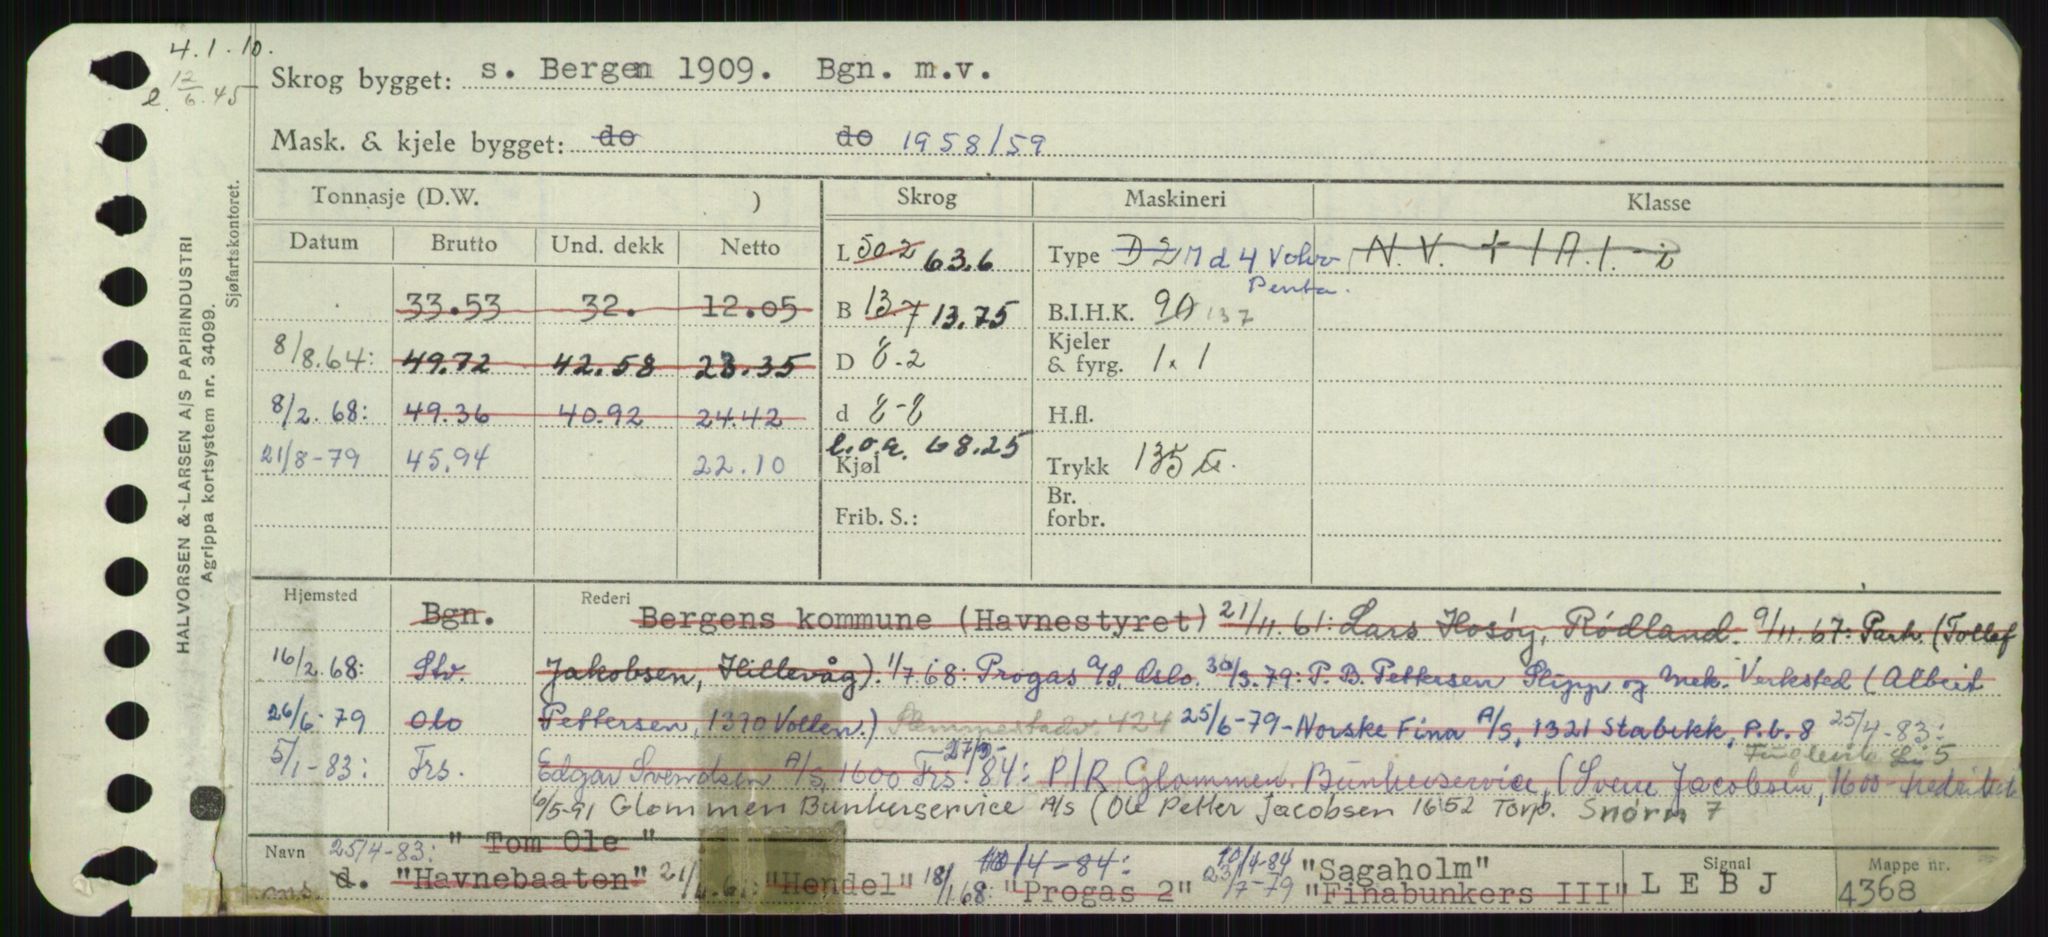 4.1.10.
12/6.45
Skrog bygget: s. Bergen 1909. Bgn. m.v.
Mask. & kjele bygget: do do 1958/59
HALVORSEN & LARSEN A/S PAPIRINDUSTRI
Agrippa kortsystem nr. 34099.
Sjøfartskontoret.
Tonnasje (D.W. ) Skrog Maskineri Klasse
Datum Brutto Und. dekk Netto
L 50 2 63.6 Type D 2 M d 4 Volvo Penta. N.V. + 1 A.1. - i
33.53 32. 12.05 B 13 7 13.75 B.I.H.K. 90 137
8/8.64: 49.72 42.58 23.35 D 8-2 Kjeler & fyrg. 1 x 1
8/2.68: 49.36 40.92 24.42 d 8-8 H.fl.
21/8-79 45.94 22.10 l.o.a. 68.25 Kjøl Trykk 135
Frib. S.: Br. forbr.
Hjemsted Rederi
Bgn. Bergens kommune (Havnestyret) 21/11.61: Lars Hosøy, Rødland. 9/11.67: Partr. (Tollef
16/2.68: Stv. Jakobsen, Hillevåg). 1/7 68: Progas A/S, Oslo. 30/3.79: P.B. Pettersen Slipp og Mek. Verksted (Albert
26/6-79 Olo Pettersen, 1390 Vollen.) 424 25/6-79-Norske Fina A/S, 1321 Stabekk, P.b. 8 25/4-83:
5/1-83: Frs. Edgar Svendsen A/S, 1600 Frs. 27/3-84: P/R Glommen Bunkerservice, (Svein Jacobsen, 1600 Fredrikstad
6/5-91 Glommen Bunkerservice A/S (Ole Petter Jacobsen 1652 Torp. Snørn 7
Navn 25/4-83: "Tom Ole" 10/4-84: 10/4-84 "Sagaholm" Signal Mappe nr.
d. "Havnebaaten" "Hendel" 18/1.68: "Progas 2" 23/7-79 "Finabunkers III" L E B J 4368